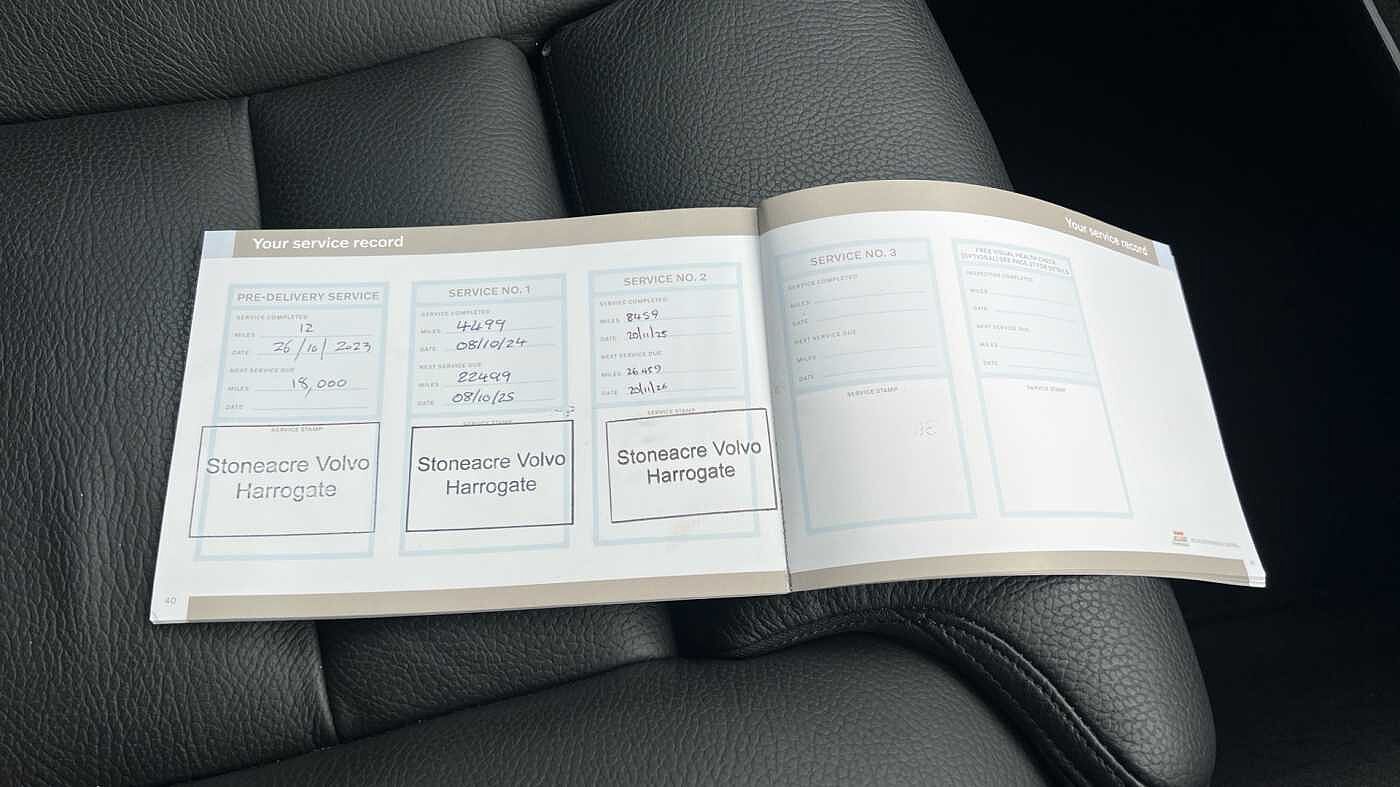 Your service record
PRE-DELIVERY SERVICE
SERVICE COMPLETED
MILES 12
DATE 26/10/2023
NEXT SERVICE DUE
MILES 18,000
DATE
SERVICE STAMP
Stoneacre Volvo
Harrogate
SERVICE NO. 1
SERVICE COMPLETED
MILES 4499
DATE 08/10/24
NEXT SERVICE DUE
MILES 22499
DATE 08/10/25
SERVICE STAMP
Stoneacre Volvo
Harrogate
SERVICE NO. 2
SERVICE COMPLETED
MILES 8459
DATE 20/11/25
NEXT SERVICE DUE
MILES 26.459
DATE 20/11/26
SERVICE STAMP
Stoneacre Volvo
Harrogate
40
Your service record
SERVICE NO. 3
SERVICE COMPLETED
MILES
DATE
NEXT SERVICE DUE
MILES
DATE
SERVICE STAMP
FREE VISUAL HEALTH CHECK
(OPTIONAL) SEE PAGE 37 FOR DETAILS
INSPECTION COMPLETED
MILES
DATE
NEXT SERVICE DUE
MILES
DATE
SERVICE STAMP